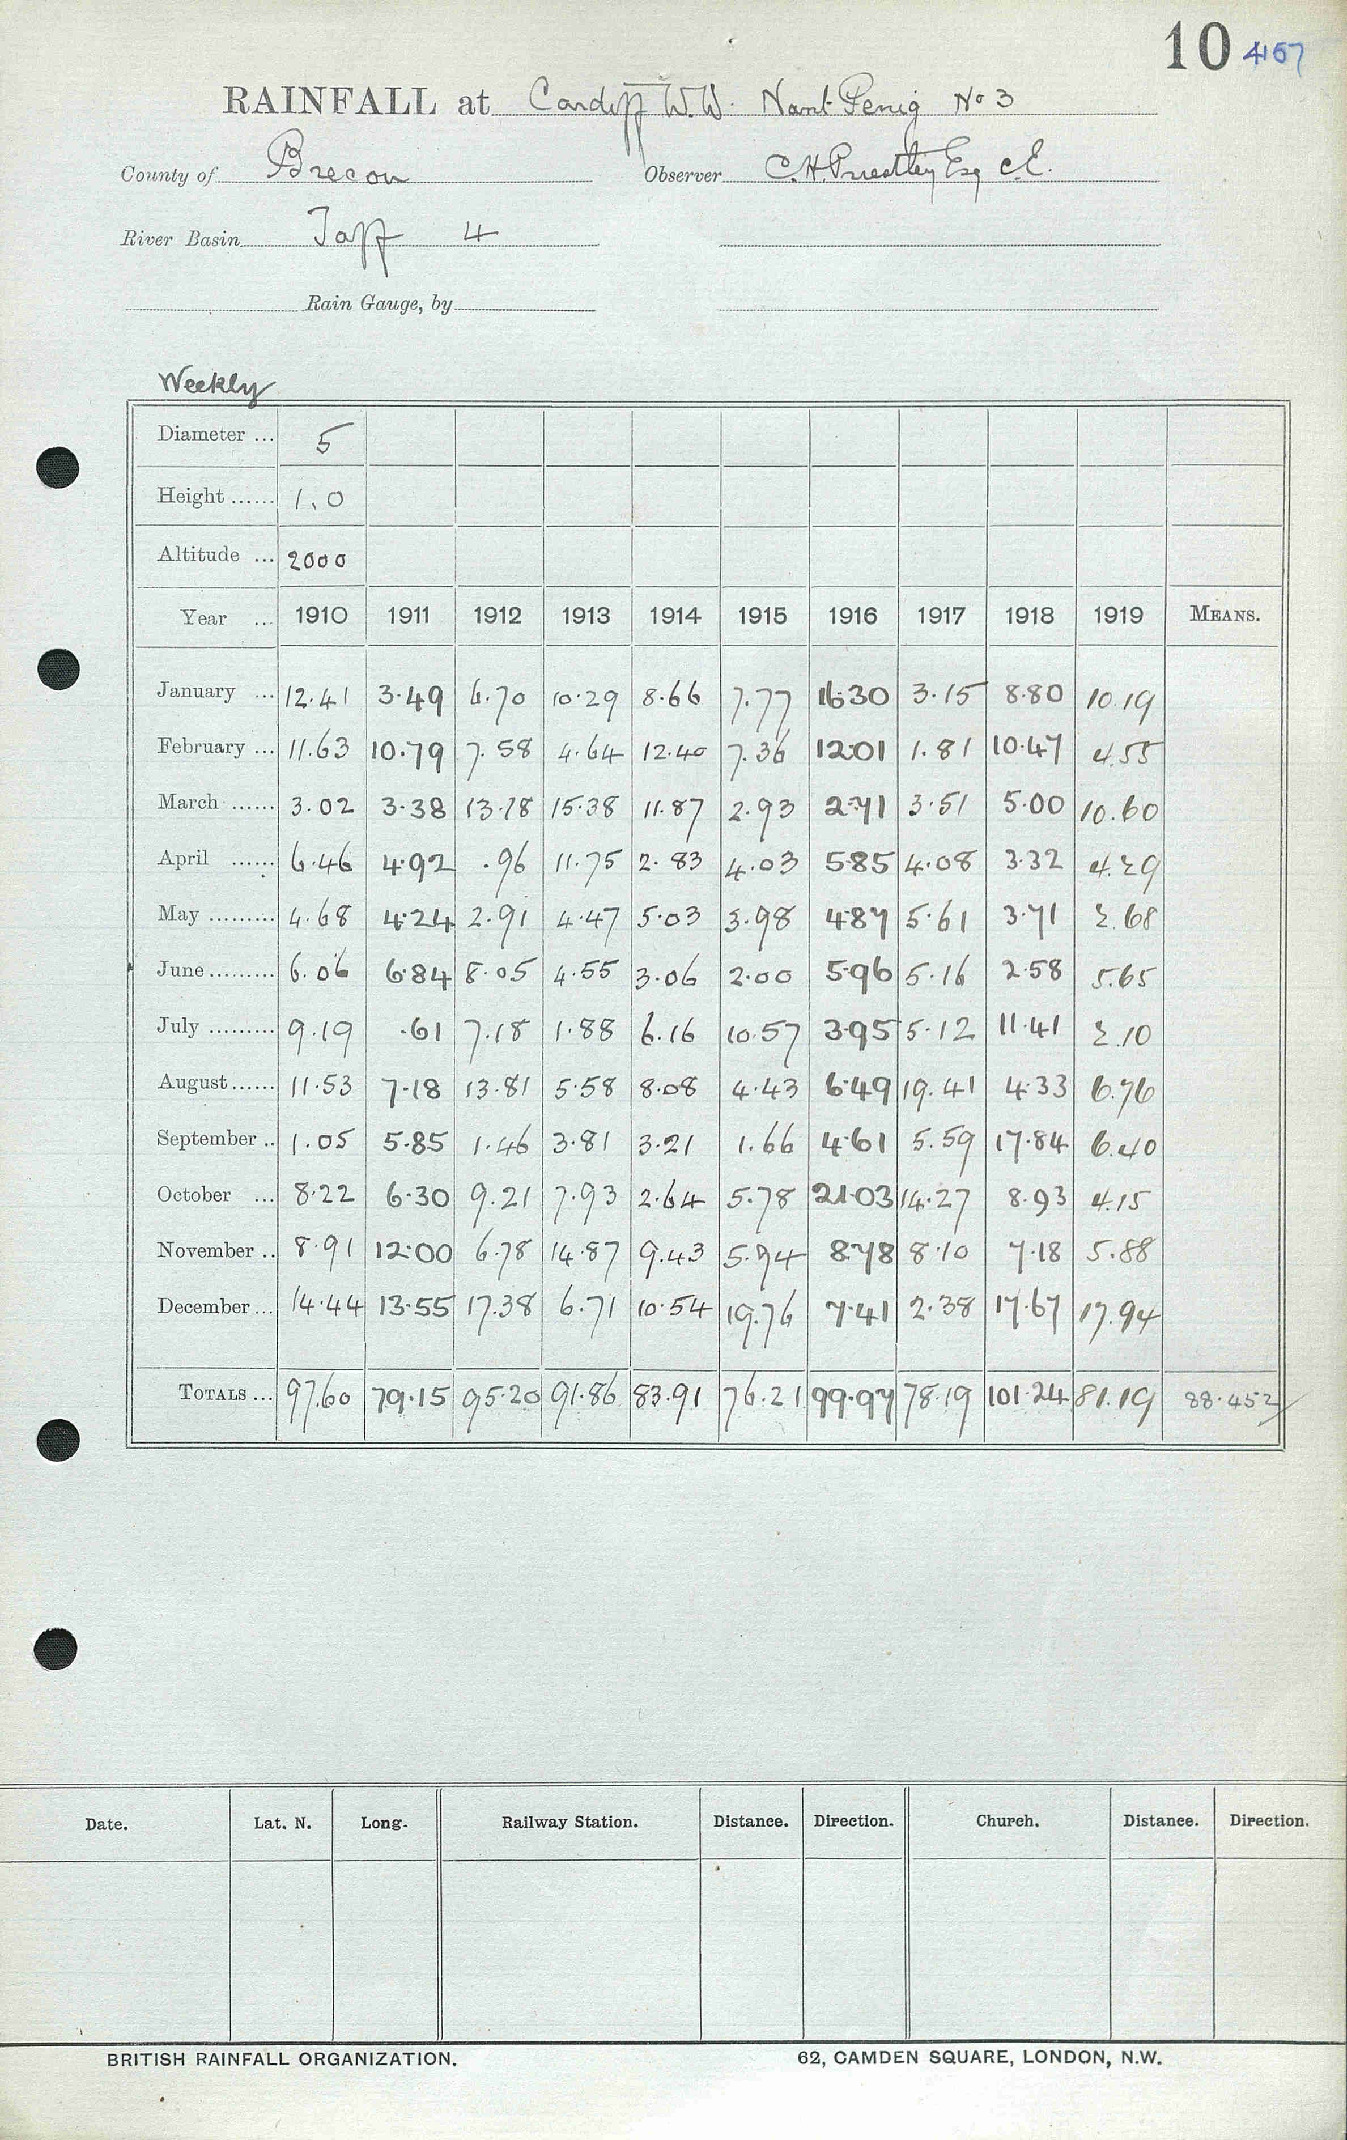 10 467
RAINFALL at Cardiff W.W. Nant Penig No 3
County of Brecon Observer C.H. Priestley Esq C.E.
River Basin Taff 4
Rain Gauge, by
Weekly
Diameter ... 5
Height ...... 1.0
Altitude ... 2000
Year ... 1910 1911 1912 1913 1914 1915 1916 1917 1918 1919 MEANS.
January ... 12.41 3.49 6.70 10.29 8.66 7.77 16.30 3.15 8.80 10.19
February ... 11.63 10.79 7.58 4.64 12.40 7.36 12.01 1.81 10.47 4.55
March ...... 3.02 3.38 13.18 15.38 11.87 2.93 2.71 3.51 5.00 10.60
April ...... 6.46 4.92 .96 11.75 2.83 4.03 5.85 4.08 3.32 4.29
May ......... 4.68 4.24 2.91 4.47 5.03 3.98 4.87 5.61 3.71 2.68
June ......... 6.06 6.84 8.05 4.55 3.06 2.00 5.96 5.16 2.58 5.65
July ......... 9.19 .61 7.18 1.88 6.16 10.57 3.95 5.12 11.41 2.10
August ...... 11.53 7.18 13.81 5.58 8.08 4.43 6.49 19.41 4.33 6.76
September .. 1.05 5.85 1.46 3.81 3.21 1.66 4.61 5.59 17.84 6.40
October ... 8.22 6.30 9.21 7.93 2.64 5.78 21.03 14.27 8.93 4.15
November .. 8.91 12.00 6.78 14.87 9.43 5.94 8.78 8.10 7.18 5.88
December ... 14.44 13.55 17.38 6.71 10.54 19.76 7.41 2.38 17.67 17.94
TOTALS ... 97.60 79.15 95.20 91.86 83.91 76.21 99.97 78.19 101.24 81.19 88.452
Date. Lat. N. Long. Railway Station. Distance. Direction. Church. Distance. Direction.
BRITISH RAINFALL ORGANIZATION. 62, CAMDEN SQUARE, LONDON, N.W.